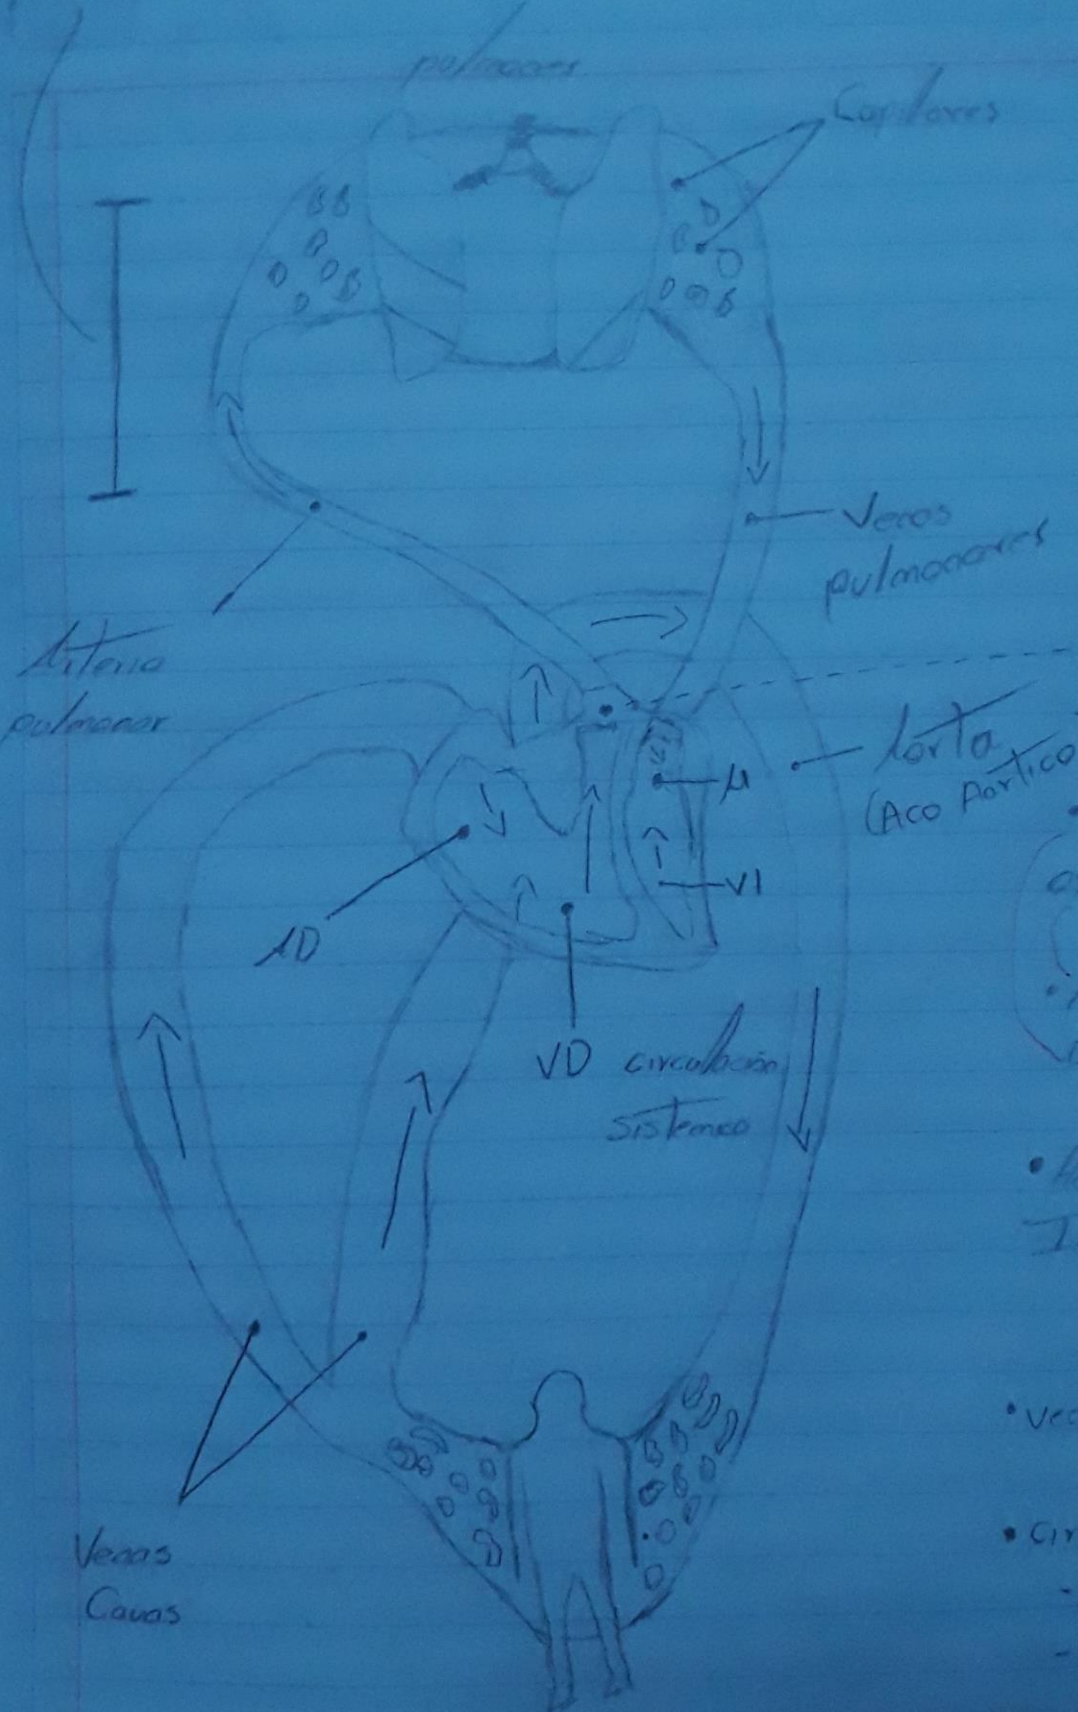 pulmones
Capilares
Venas
pulmonares
Arteria
pulmonar
Aorta
(Aco Aortico
AI
VI
AD
VD
circulación
sistemica
Venas
Cavas